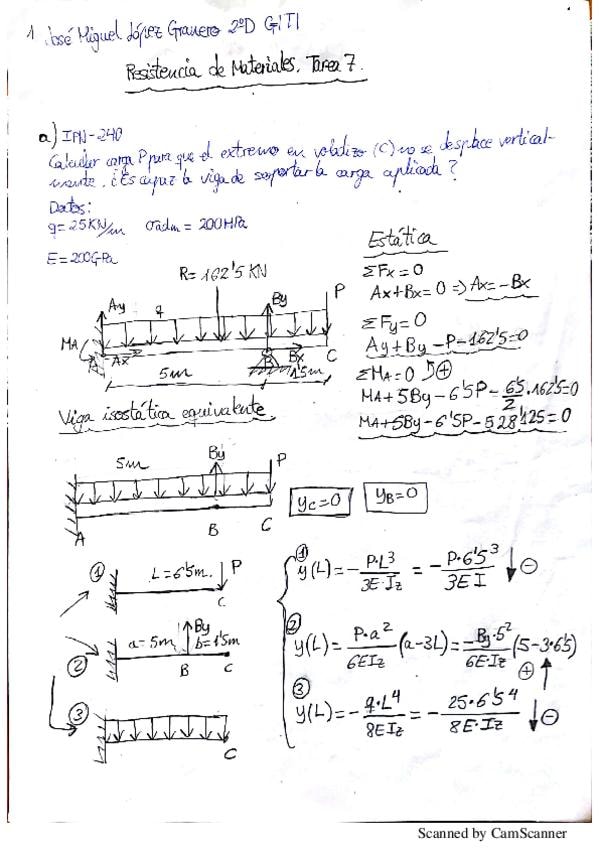 1 José Miguel López Granero 2ºD GITI
Resistencia de Materiales. Tarea 7.
a) IPN-240
Calcular carga P para que el extremo en voladizo (C) no se desplace vertical-
mente. ¿Es capaz la viga de soportar la carga aplicada?
Datos:
q=25KN/m σadm = 200MPa
E=200GPa
R=162'5 KN
Ay
q
By
P
MA
A
Ax
B
Bx
C
5m
1'5m
Estática
ΣFx=0
Ax+Bx=0 => Ax=-Bx
ΣFy=0
Ay+By-P-162'5=0
ΣMA=0 ⊕
MA+5By-6'5P-6'5/2·162'5=0
MA+5By-6'5P-528'125=0
Viga isostática equivalente
5m
By
P
A
B
C
yC=0
yB=0
① L=6'5m. P
C
② a=5m By b=1'5m
B C
③
C
① y(L)=-P·L³/3E·Iz = -P·6'5³/3EI ↓⊖
② y(L)=P·a²/6EIz(a-3L)=-By·5²/6E·Iz(5-3·6'5)
⊕ ↑
③ y(L)=-q·L⁴/8EIz = -25·6'5⁴/8E·Iz ↓⊖
Scanned by CamScanner